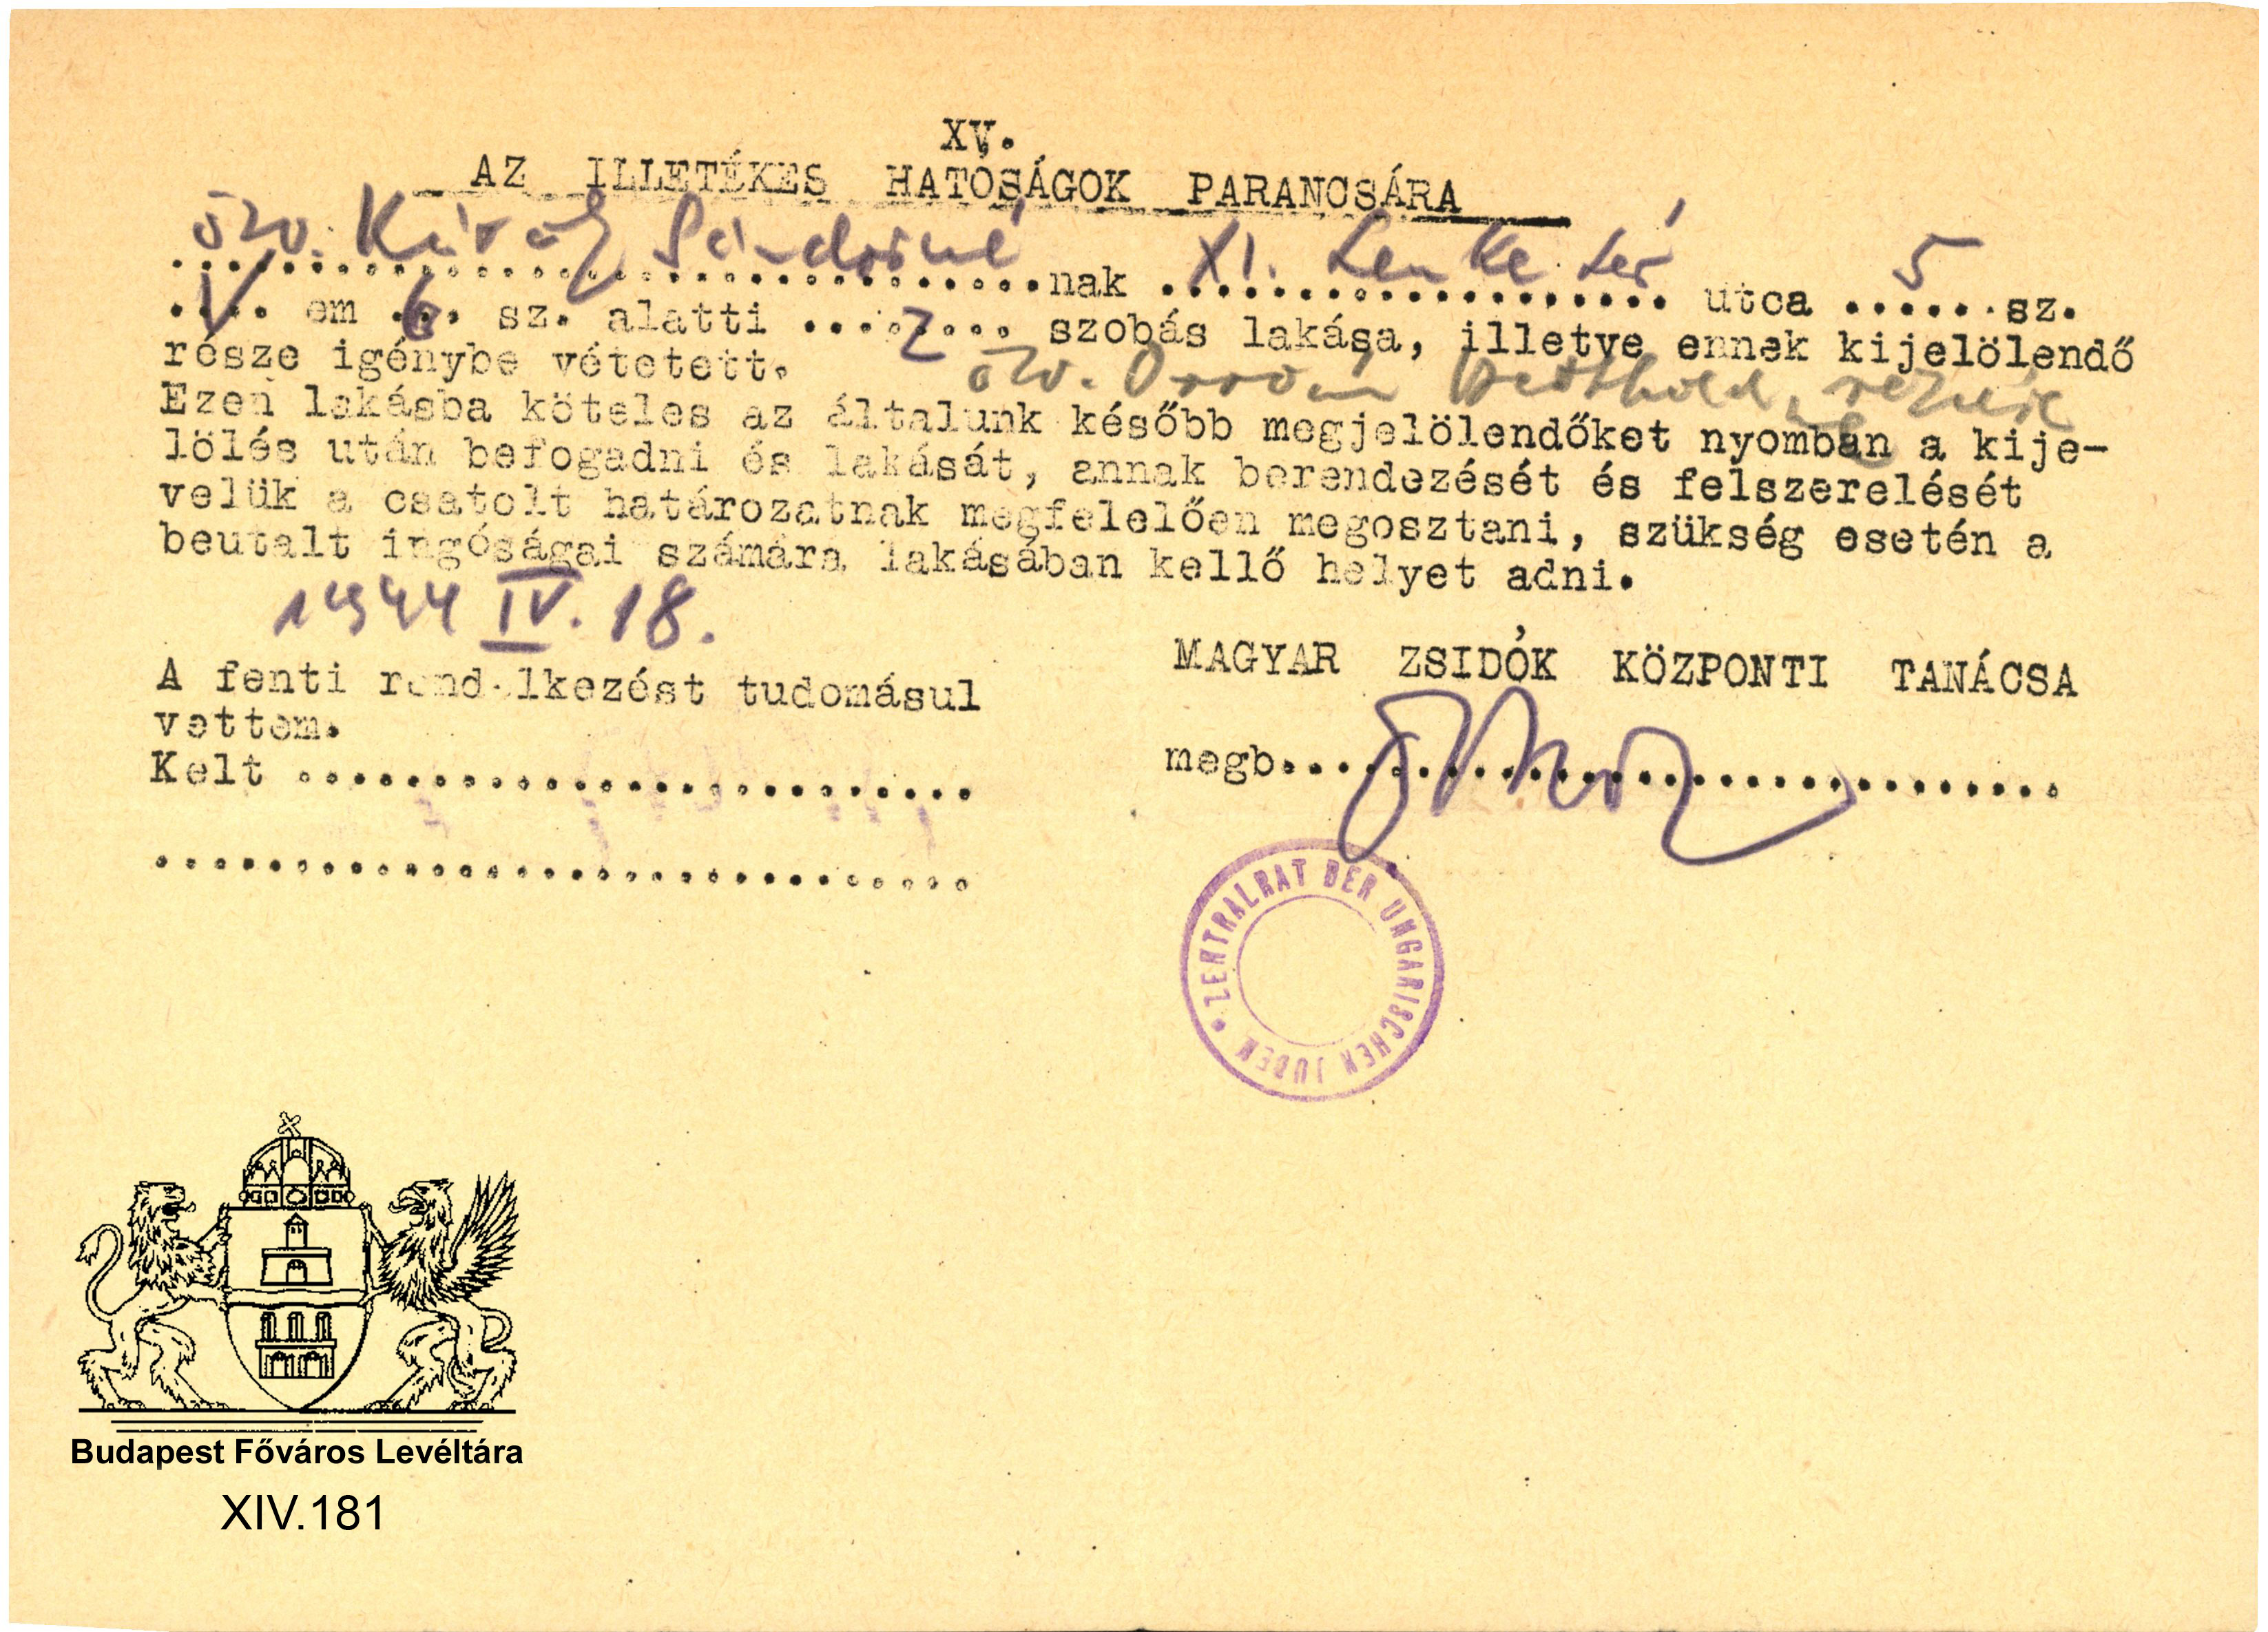 XV.
AZ ILLETÉKES HATÓSÁGOK PARANCSÁRA
özv. Károly Sándorné nak XI. Lenke tér utca 5 sz.
em 6 sz. alatti 2 szobás lakása, illetve ennek kijelölendő
része igénybe vétetett.
özv. részére
Ezen lakásba köteles az általunk később megjelölendőket nyomban a kije-
lölés után befogadni és lakását, annak berendezését és felszerelését
velük a csatolt határozatnak megfelelően megosztani, szükség esetén a
beutalt ingóságai számára lakásában kellő helyet adni.
1944 IV. 18.
MAGYAR ZSIDÓK KÖZPONTI TANÁCSA
A fenti rendelkezést tudomásul
vettem.
Kelt ........................
megb.............................
..............................
ZENTRALRAT DER UNGARISCHEN JUDEN
Budapest Főváros Levéltára
XIV.181